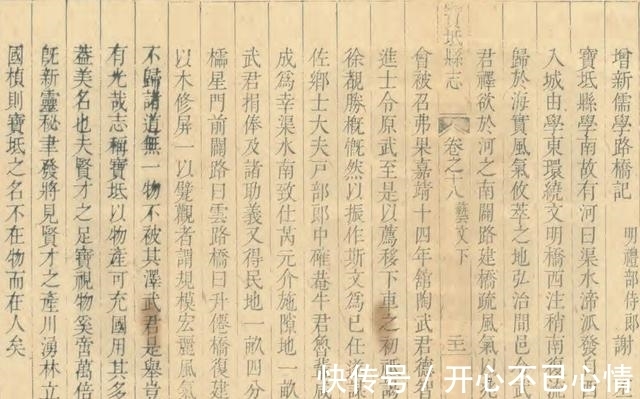 增新儒學路橋記
明禮部侍郎 謝
寶坻縣學南故有河曰渠水渧派發自
入城由學東環繞文明橋西注稍南復
歸於海實風氣攸萃之地弘治間邑
君禪欲於河之南闢路建橋疏風氣
寶坻縣志
卷之十八 藝文下
會被召弗果嘉靖十四年舘陶武君德
進士令原武至是以薦移下車之初祗
徐觀勝槪慨然以振作斯文為已任
佐鄉士大夫戸部郎中確菴牛君魯
成為幸渠水南致仕芮元介施隙地一畝
武君捐俸及諸助義又得民地一畝四分
櫺星門前闢路曰雲路橋曰升僊橋復建
以木修屏一以聳觀者謂規模宏麗風氣
不歸諸道無一物不被其澤武君是舉
有光哉志稱寶坻以物產可充國用其多
葢美名也夫賢才之足寶視物奚啻萬倍
旣新靈秘聿發將見賢才之產川湧林立
國楨則寶坻之名不在物而在人矣
快传号/开心不已心情